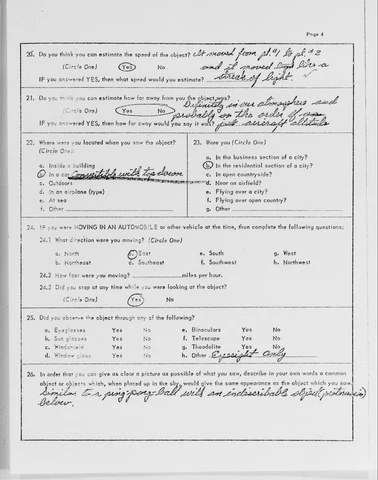 Page 4
20. Do you think you can estimate the speed of the object? It moved from pt. #1 to pt. #2
(Circle One) Yes No and it moved like a
IF you answered YES, then what speed would you estimate? streak of light.
21. Do you think you can estimate how far away from you the object was? Definitely in our atmosphere and
(Circle One) Yes No probably on the order of
IF you answered YES, then how far away would you say it was? jet aircraft altitude
22. Where were you located when you saw the object?
(Circle One):
a. Inside a building
b. In a car Convertible with top down
c. Outdoors
d. In an airplane (type)
e. At sea
f. Other
23. Were you (Circle One)
a. In the business section of a city?
b. In the residential section of a city?
c. In open countryside?
d. Near an airfield?
e. Flying over a city?
f. Flying over open country?
g. Other
24. IF you were MOVING IN AN AUTOMOBILE or other vehicle at the time, then complete the following questions:
24.1 What direction were you moving? (Circle One)
a. North c. East e. South g. West
b. Northeast d. Southeast f. Southwest h. Northwest
24.2 How fast were you moving? miles per hour.
24.3 Did you stop at any time while you were looking at the object?
(Circle One) Yes No
25. Did you observe the object through any of the following?
a. Eyeglasses Yes No e. Binoculars Yes No
b. Sun glasses Yes No f. Telescope Yes No
c. Windshield Yes No g. Theodolite Yes No
d. Window glass Yes No h. Other Eyesight Only
26. In order that you can give as clear a picture as possible of what you saw, describe in your own words a common
object or objects which, when placed up in the sky, would give the same appearance as the object which you saw.
Similar to a ping-pong ball with an indescribable object protruding
below.